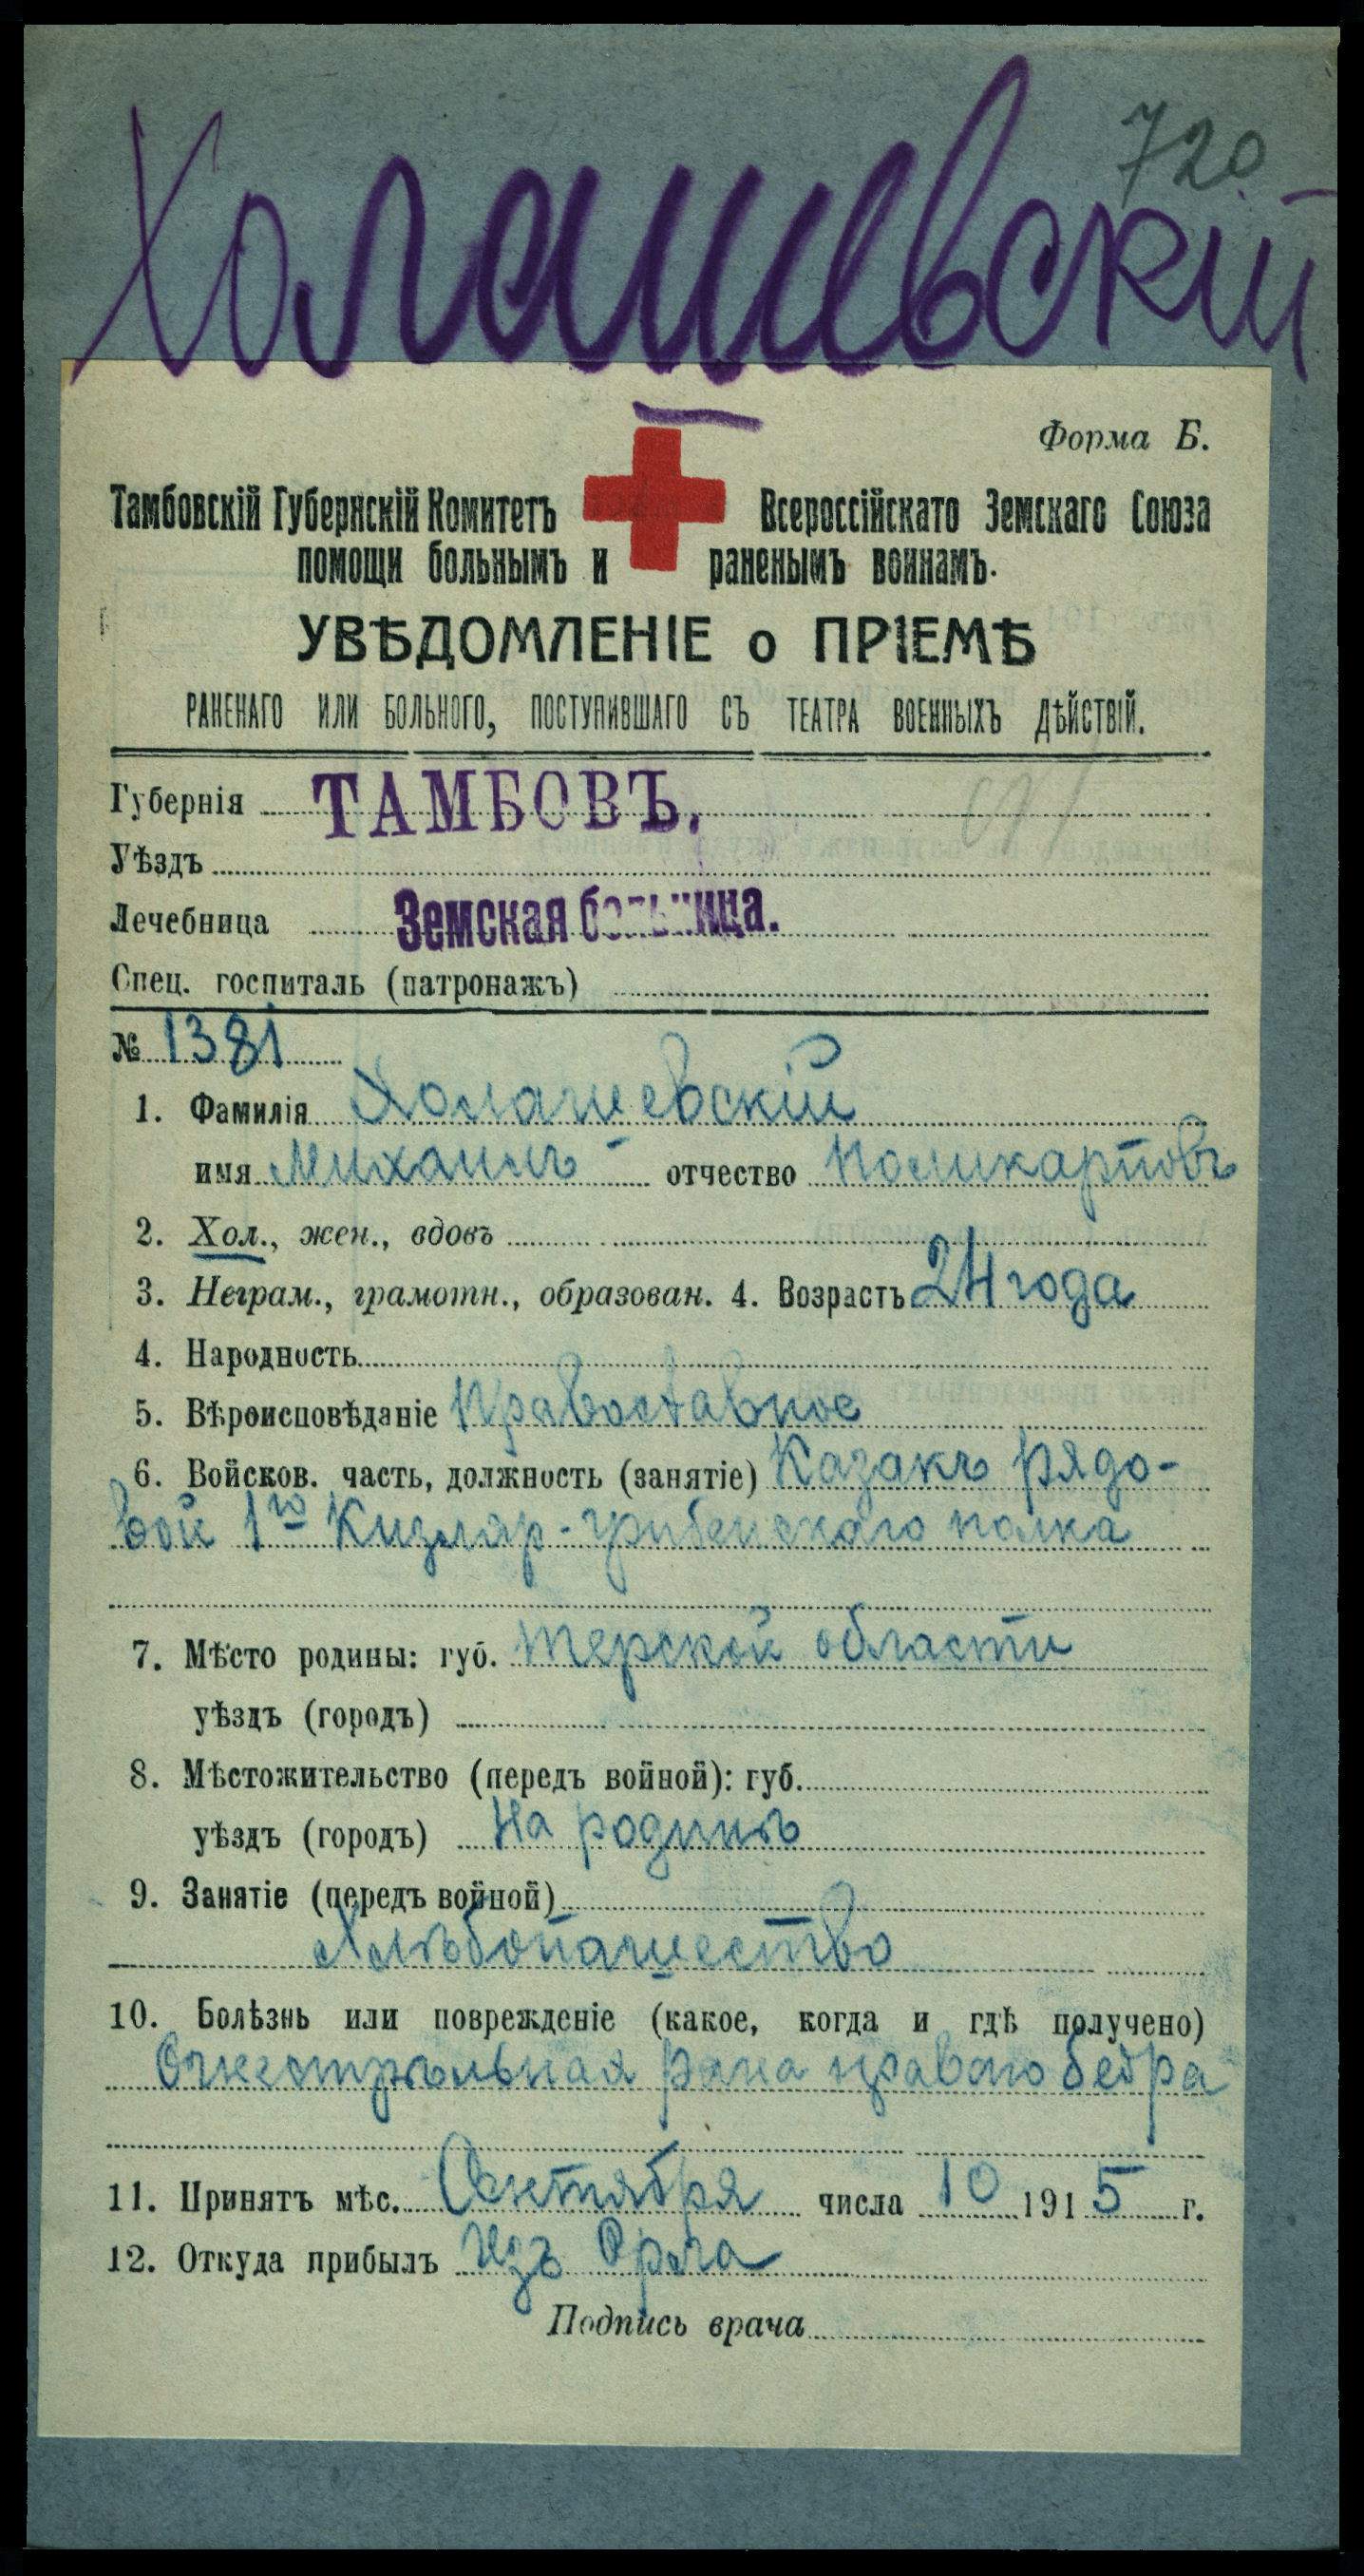 720
Холашевскій
Форма Б.
Тамбовскій Губернскій Комитетъ Всероссійскато Земскаго Союза
помощи больнымъ и раненымъ воинамъ.
УВѢДОМЛЕНІЕ о ПРІЕМѢ
РАНЕНАГО ИЛИ БОЛЬНОГО, ПОСТУПИВШАГО СЪ ТЕАТРА ВОЕННЫХЪ ДѢЙСТВІЙ.
Губернія ТАМБОВЪ.
Уѣздъ
Лечебница Земская больница.
Спец. госпиталь (патронажъ)
№ 1381
1. Фамилія Холашевскій
имя Михаилъ отчество Поликарповъ
2. Хол., жен., вдовъ
3. Неграм., грамотн., образован. 4. Возрастъ 24 года
4. Народность
5. Вѣроисповѣданіе Православное
6. Войсков. часть, должность (занятіе) Казакъ рядо-
вой 1го Кизляр-грибенскаго полка
7. Мѣсто родины: губ. Терской области
уѣздъ (городъ)
8. Мѣстожительство (передъ войной): губ.
уѣздъ (городъ) На родинѣ
9. Занятіе (передъ войной)
Хлѣбопашество
10. Болѣзнь или поврежденіе (какое, когда и гдѣ получено)
Огнестрѣльная рана праваго бедра
11. Принятъ мѣс. Сентября числа 10 1915 г.
12. Откуда прибылъ Изъ Орла
Подпись врача